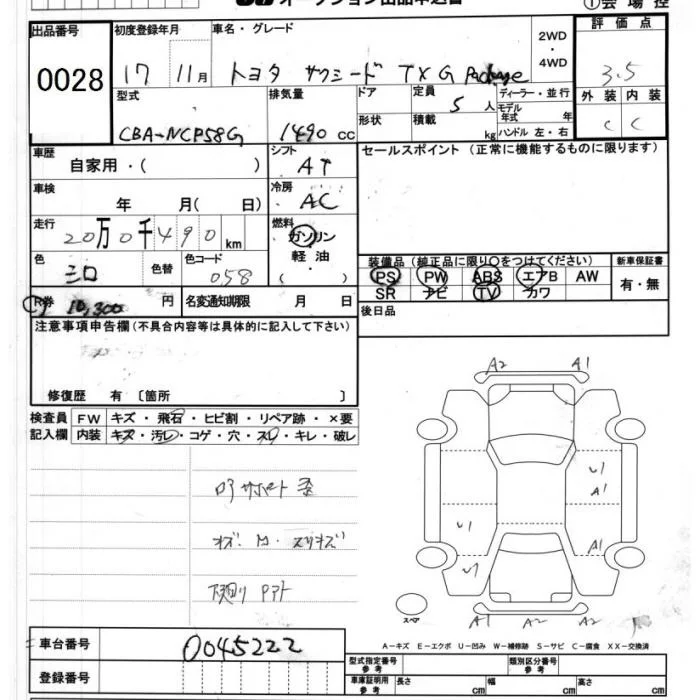 オークション出品申込書 ①会場控
出品番号 初度登録年月 車名・グレード 2WD・4WD 評価点
0028 17 11月 トヨタ サクシード TX G Package 3.5
型式 排気量 ドア 定員 5人 ディーラー・並行 外装 内装
CBA-NCP58G 1490 cc 形状 積載 kg モデル年式 年 ハンドル 左・右 C C
車歴 自家用・( ) シフト AT セールスポイント (正常に機能するものに限ります)
車検 年 月( 日) 冷房 AC
走行 20万0千490km 燃料 ガソリン 軽油・( )
色 シロ 色替 色コード 058 装備品 (純正品に限り○をつけてください) 新車保証書
PS PW ABS エアB AW 有・無
SR ナビ TV カワ
R券 10,300 円 名変通知期限 月 日 後日品
注意事項申告欄 (不具合内容等は具体的に記入して下さい)
修復歴 有 〔箇所 〕
検査員 FW キズ・飛石・ヒビ割・リペア跡・×要
記入欄 内装 キズ・汚レ・コゲ・穴・スレ・キレ・破レ
A2 A1
U1
A1
U1 A1
U1
A1 A2 A2
スペア
サポート 歪
下廻り
車台番号 0045222
A-キズ E-エクボ U-凹み W-補修跡 S-サビ C-腐食 XX-交換済
登録番号 型式指定番号 参考 類別区分番号 参考
車庫証明用 参考 長さ cm 幅 cm 高さ cm